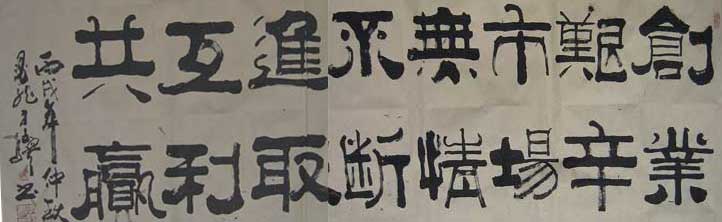 創業
艱辛
市場
無情
不断
進取
互利
共贏
丙戌年仲秋